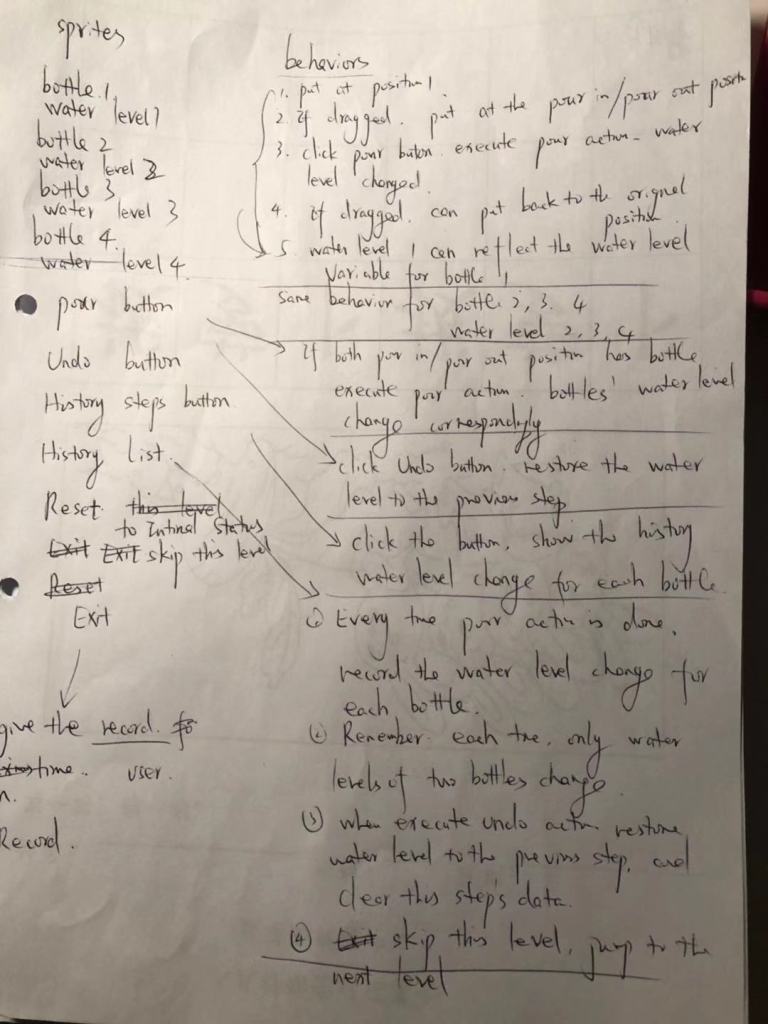 sprites
bottle 1.
water level 1
bottle 2
water level 2
bottle 3
water level 3
bottle 4.
water level 4.
pour button
Undo button
History steps button
History list.
Reset this level
to Intinal Status
Exit Exit skip this level
Reset
Exit
give the record. fo
time.. user.
n.
Record.
behaviors
1. put at position 1.
2. If dragged. put at the pour in/pour out position
3. click pour button. execute pour action - water
level changed.
4. if dragged. can put back to the orignal
position.
5. water level 1 can reflect the water level
variable for bottle 1
Same behavior for bottle 2, 3. 4
water level 2, 3, 4
If both pour in/pour out position has bottle
execute pour action. bottles' water level
change correspondingly
click Undo button. restore the water
level to the previous step
click the button, show the history
water level change for each bottle.
① Every time pour action is done,
record the water level change for
each bottle.
② Remember. each time, only water
levels of two bottles change.
③ when execute undo action. restore
water level to the previous step, and
clear this step's data.
④ Exit skip this level, jump to the
next level